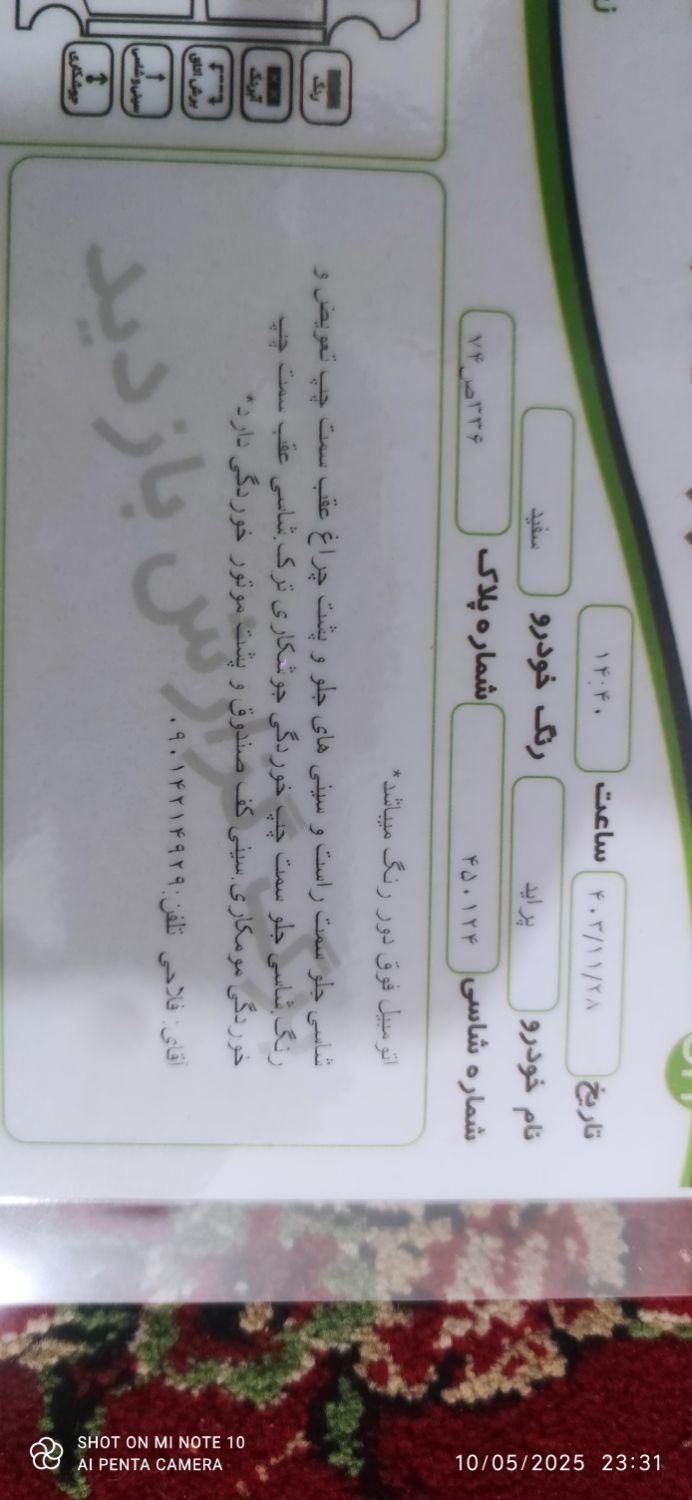 تاریخ ۴۰۳/۱۱/۲۸ ساعت ۱۴:۴۰
نام خودرو پراید رنگ خودرو سفید
شماره شاسی ۴۵۰۱۲۴ شماره پلاک ۳۳۶ص۷۴
اتومبیل فوق دور رنگ میباشد*
شاسی جلو سمت راست و سینی های جلو و پشت چراغ عقب سمت چپ تعویض و
رنگ.شاسی جلو سمت چپ خوردگی جوشکاری ترک.شاسی عقب سمت چپ
خوردگی مومکاری.سینی کف صندوق و پشت موتور خوردگی دارد*
آقای: فلاحی تلفن:۰۹۰۱۴۲۱۴۹۲۹
برگ گزارش بازدید
رنگ
آبرنگ
برش اتاق
سینی و شاسی
جوشکاری
SHOT ON MI NOTE 10
AI PENTA CAMERA
10/05/2025 23:31